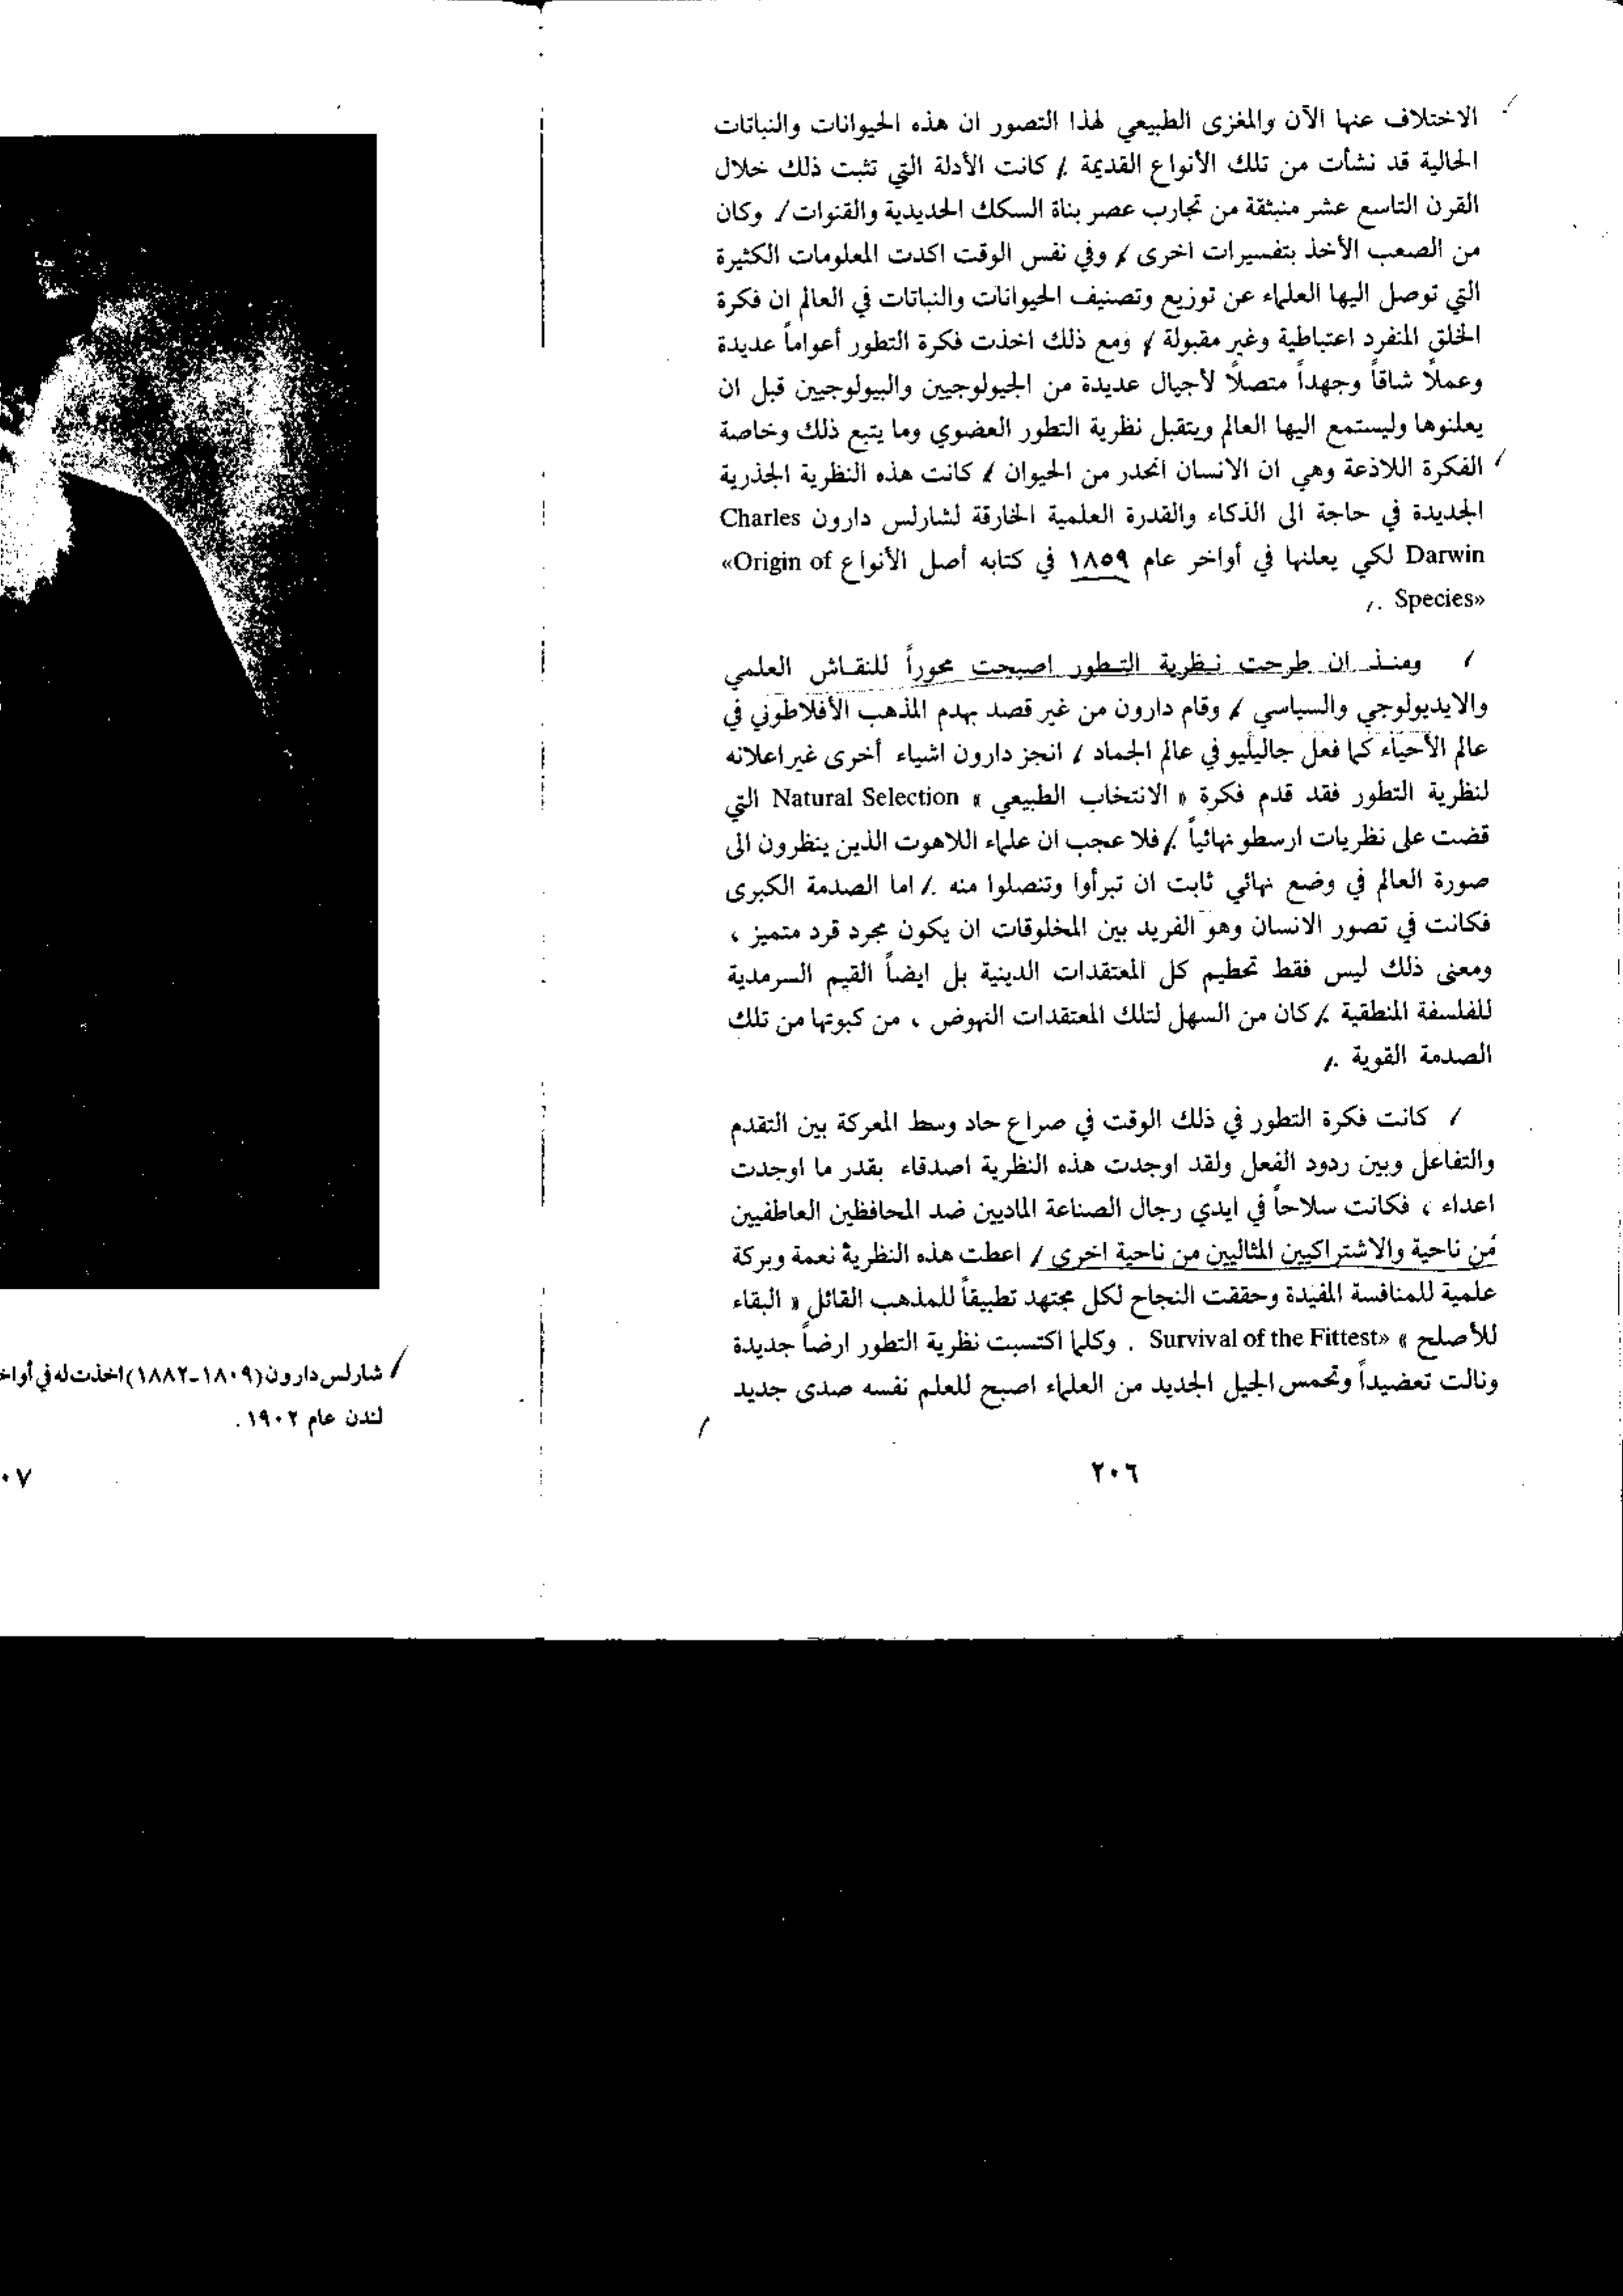 الاختلاف عنها الآن والمغزى الطبيعي لهذا التصور ان هذه الحيوانات والنباتات
الحالية قد نشأت من تلك الأنواع القديمة . كانت الأدلة التي تثبت ذلك خلال
القرن التاسع عشر منبثقة من تجارب عصر بناة السكك الحديدية والقنوات . وكان
من الصعب الأخذ بتفسيرات اخرى ، وفي نفس الوقت اكدت المعلومات الكثيرة
التي توصل اليها العلماء عن توزيع وتصنيف الحيوانات والنباتات في العالم ان فكرة
الخلق المنفرد اعتباطية وغير مقبولة ، ومع ذلك اخذت فكرة التطور أعواماً عديدة
وعملاً شاقاً وجهداً متصلاً لأجيال عديدة من الجيولوجيين والبيولوجيين قبل ان
يعلنوها وليستمع اليها العالم ويتقبل نظرية التطور العضوي وما يتبع ذلك وخاصة
الفكرة اللاذعة وهي ان الانسان انحدر من الحيوان ، كانت هذه النظرية الجذرية
الجديدة في حاجة الى الذكاء والقدرة العلمية الخارقة لشارلس دارون Charles
Darwin لكي يعلنها في أواخر عام ١٨٥٩ في كتابه أصل الأنواع «Origin of
Species» .
ومنذ ان طرحت نظرية التطور اصبحت محوراً للنقاش العلمي
والايديولوجي والسياسي ، وقام دارون من غير قصد بهدم المذهب الأفلاطوني في
عالم الأحياء كما فعل جاليليو في عالم الجماد ، انجز دارون اشياء أخرى غير اعلانه
لنظرية التطور فقد قدم فكرة « الانتخاب الطبيعي » Natural Selection التي
قضت على نظريات ارسطو نهائياً . فلا عجب ان علماء اللاهوت الذين ينظرون الى
صورة العالم في وضع نهائي ثابت ان تبرأوا وتنصلوا منه . اما الصدمة الكبرى
فكانت في تصور الانسان وهو الفريد بين المخلوقات ان يكون مجرد قرد متميز ،
ومعنى ذلك ليس فقط تحطيم كل المعتقدات الدينية بل ايضاً القيم السرمدية
للفلسفة المنطقية . كان من السهل لتلك المعتقدات النهوض ، من كبوتها من تلك
الصدمة القوية .
كانت فكرة التطور في ذلك الوقت في صراع حاد وسط المعركة بين التقدم
والتفاعل وبين ردود الفعل ولقد اوجدت هذه النظرية اصدقاء بقدر ما اوجدت
اعداء ، فكانت سلاحاً في ايدي رجال الصناعة الماديين ضد المحافظين العاطفيين
من ناحية والاشتراكيين المثاليين من ناحية اخرى / اعطت هذه النظرية نعمة وبركة
علمية للمنافسة المفيدة وحققت النجاح لكل مجتهد تطبيقاً للمذهب القائل « البقاء
للأصلح » «Survival of the Fittest» . وكلما اكتسبت نظرية التطور ارضاً جديدة
ونالت تعضيداً وتحمس الجيل الجديد من العلماء اصبح للعلم نفسه صدى جديد
٢٠٦
شارلس دارون (١٨٠٩-١٨٨٢) اخذت له في أواخ
لندن عام ١٩٠٢ .
٠٧